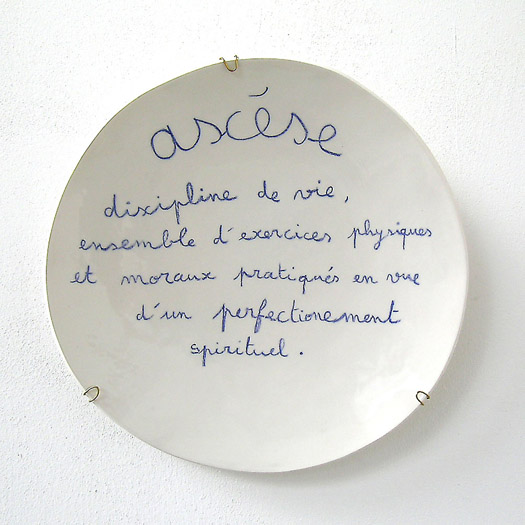 ascèse
discipline de vie,
ensemble d'exercices physiques
et moraux pratiqués en vue
d'un perfectionement
spirituel.